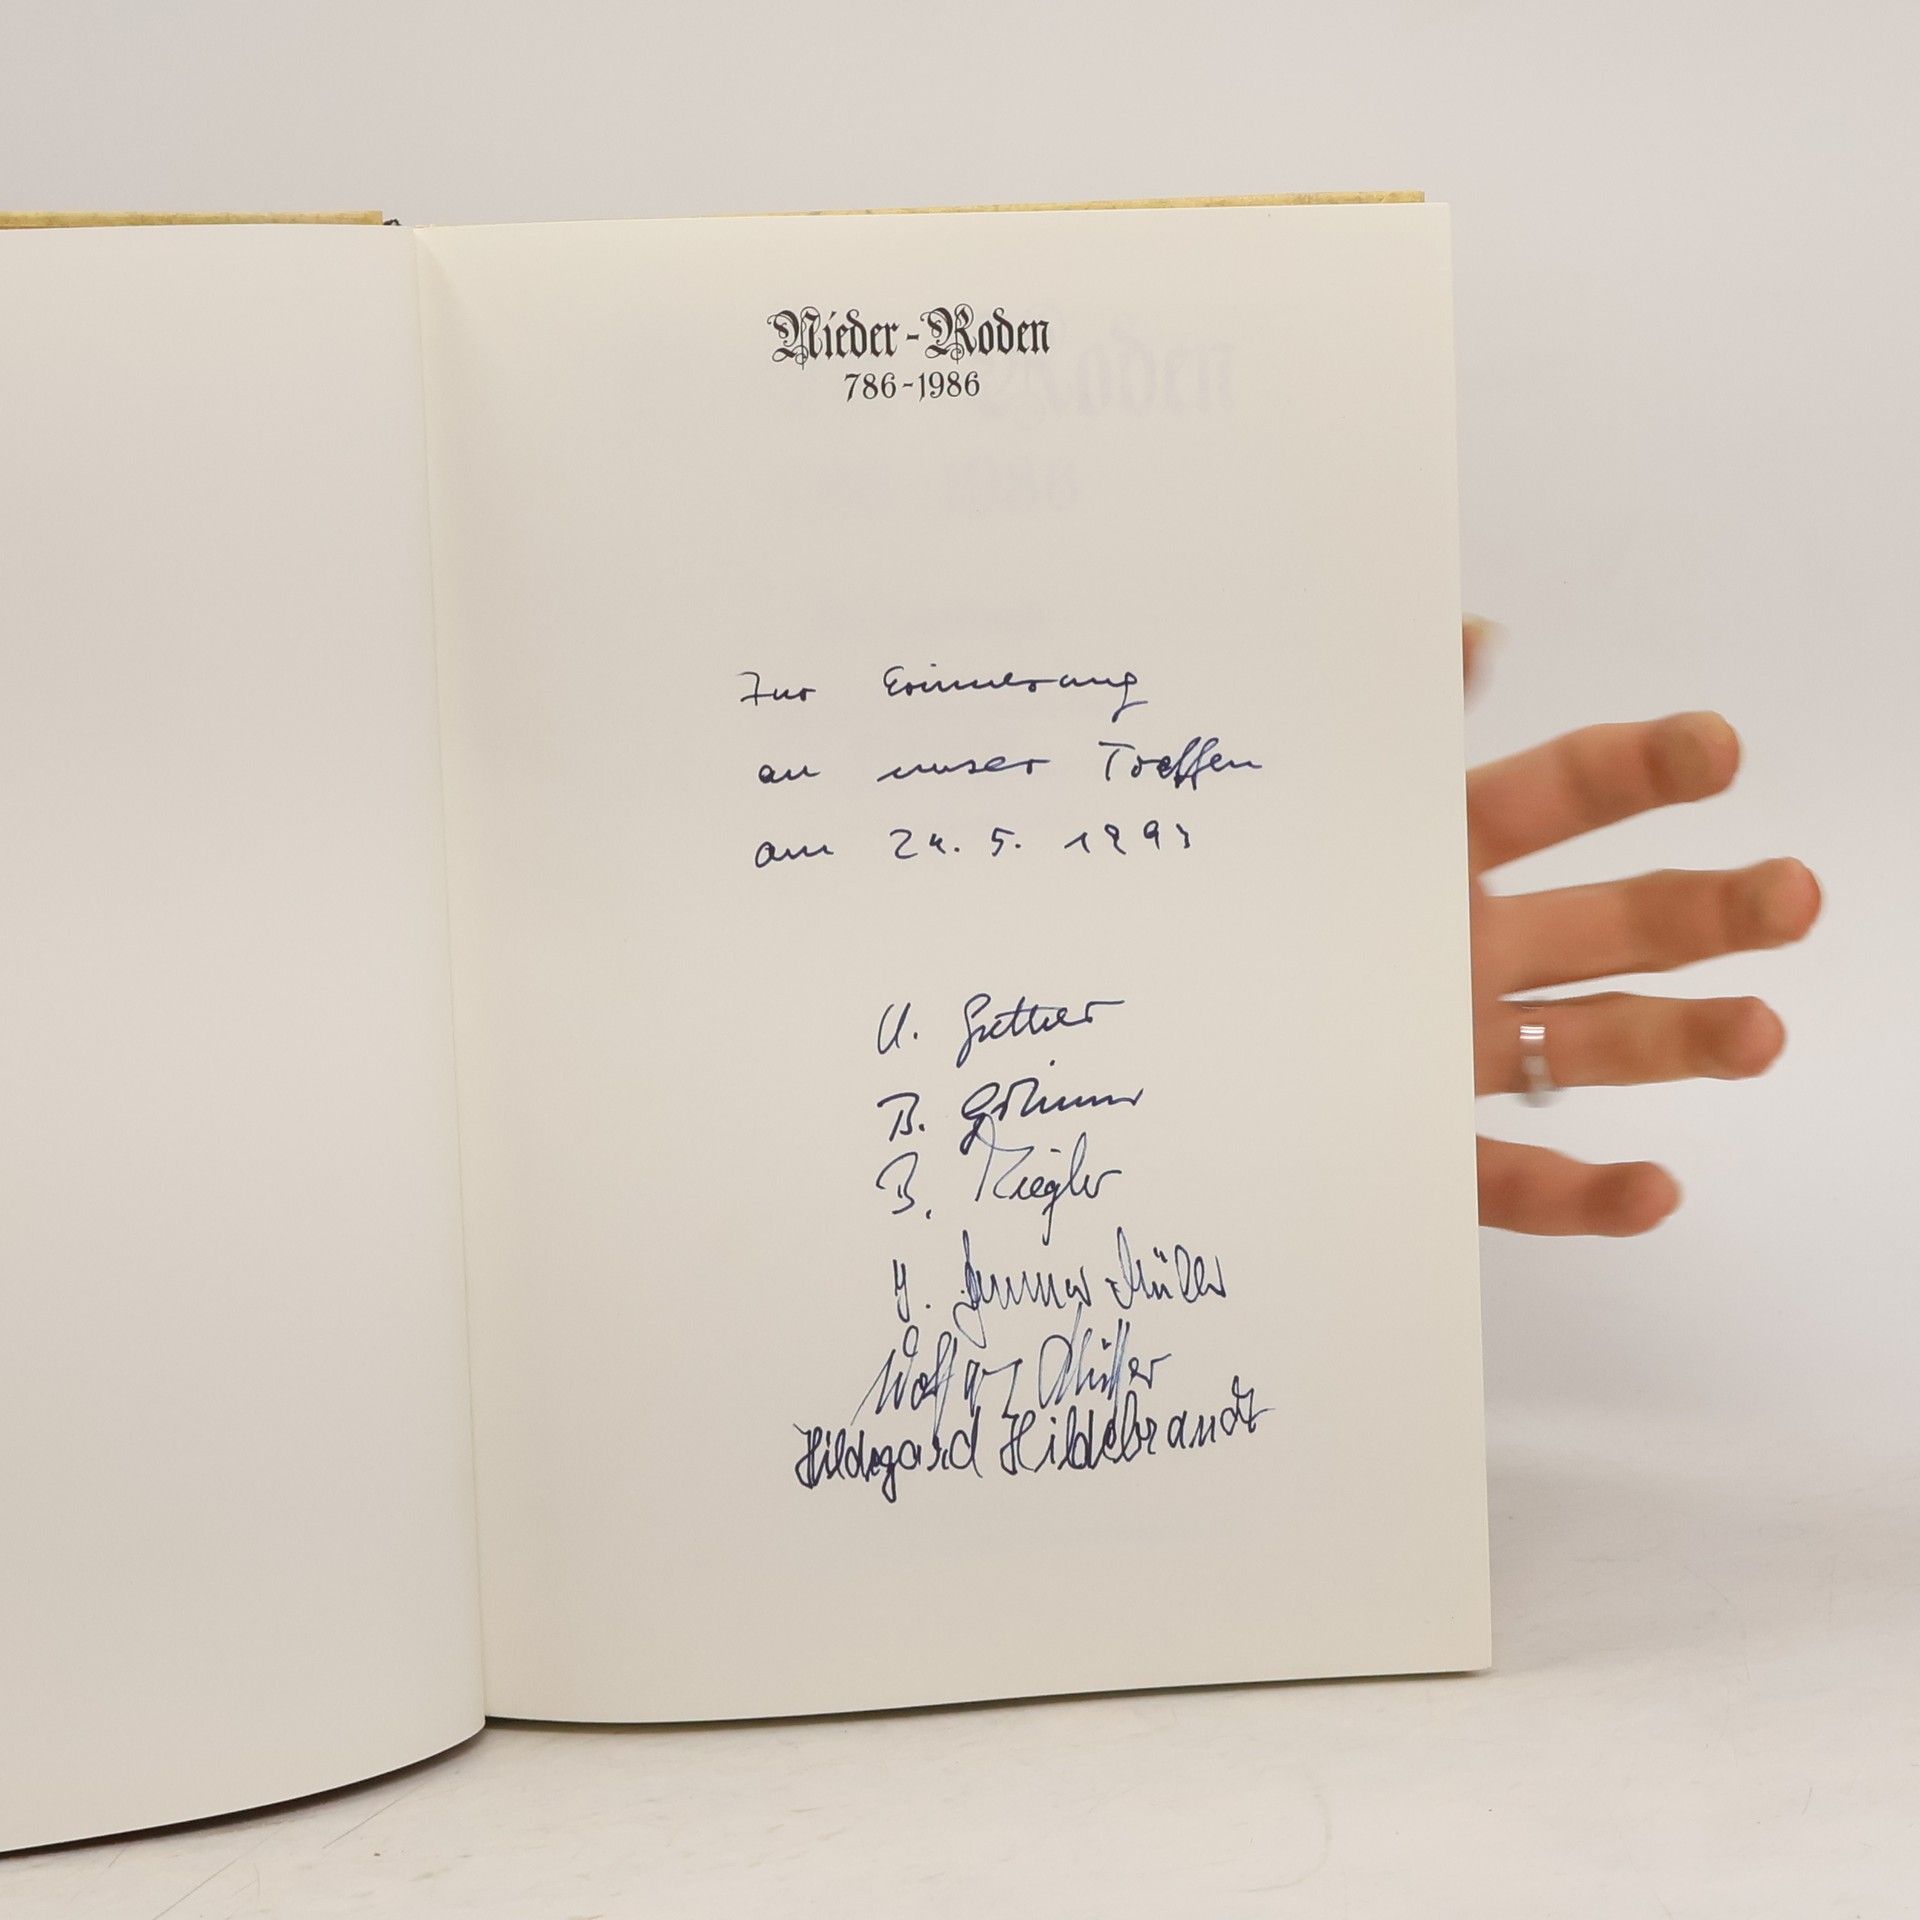 Nieder-Roden
786-1986
Zur Erinnerung
an unser Treffen
am 24. 5. 1993
B.
B. Riegler
Müller
Wolfgang
Hildegard Hildebrandt